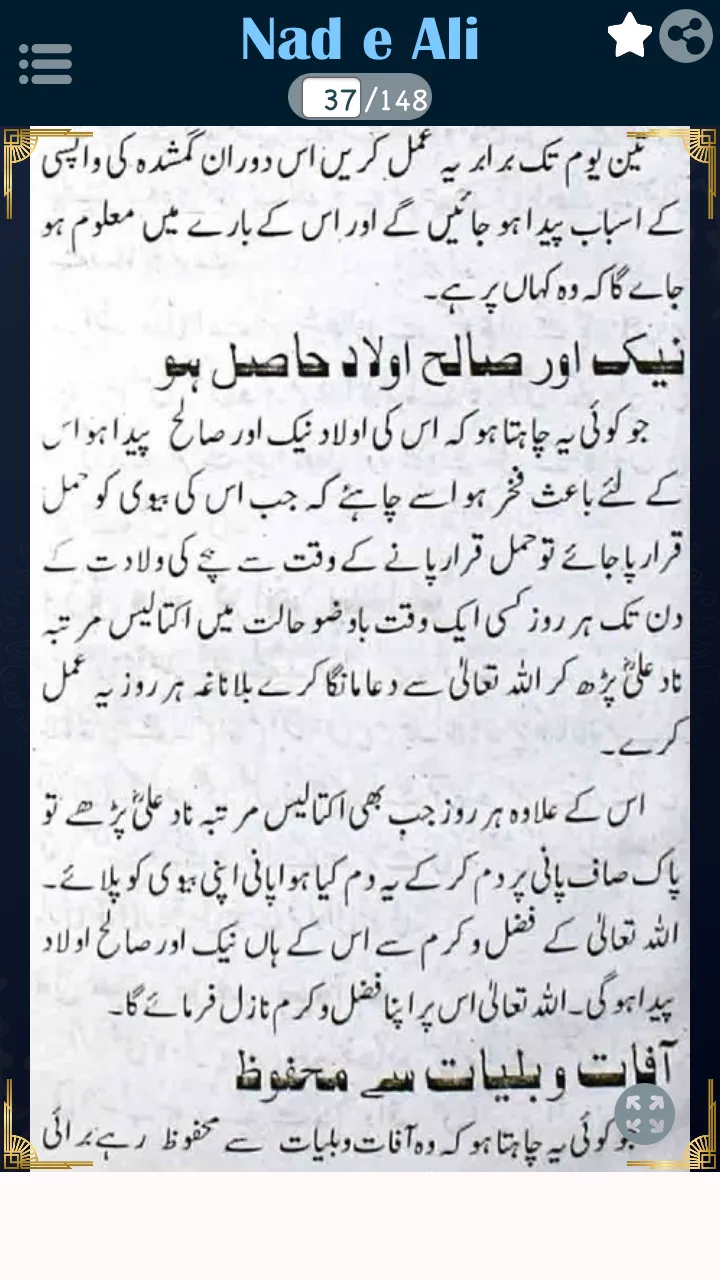 Nad e Ali
37/148
تین یوم تک برابر یہ عمل کریں اس دوران گمشدہ کی واپسی
کے اسباب پیدا ہو جائیں گے اور اس کے بارے میں معلوم ہو
جاے گا کہ وہ کہاں پر ہے۔
نیک اور صالح اولاد حاصل ہو
جو کوئی یہ چاہتا ہو کہ اس کی اولاد نیک اور صالح پیدا ہو اس
کے لئے باعث فخر ہو اسے چاہئے کہ جب اس کی بیوی کو حمل
قرار پا جائے تو حمل قرار پانے کے وقت سے بچے کی ولادت کے
دن تک ہر روز کسی ایک وقت باوضو حالت میں اکتالیس مرتبہ
ناد علیؓ پڑھ کر اللہ تعالیٰ سے دعا مانگا کرے بلا ناغہ ہر روز یہ عمل
کرے۔
اس کے علاوہ ہر روز جب بھی اکتالیس مرتبہ ناد علیؓ پڑھے تو
پاک صاف پانی پر دم کر کے یہ دم کیا ہوا پانی اپنی بیوی کو پلائے۔
اللہ تعالیٰ کے فضل و کرم سے اس کے ہاں نیک اور صالح اولاد
پیدا ہو گی۔ اللہ تعالیٰ اس پر اپنا فضل و کرم نازل فرمائے گا۔
آفات و بلیات سے محفوظ
جو کوئی یہ چاہتا ہو کہ وہ آفات و بلیات سے محفوظ رہے برائی